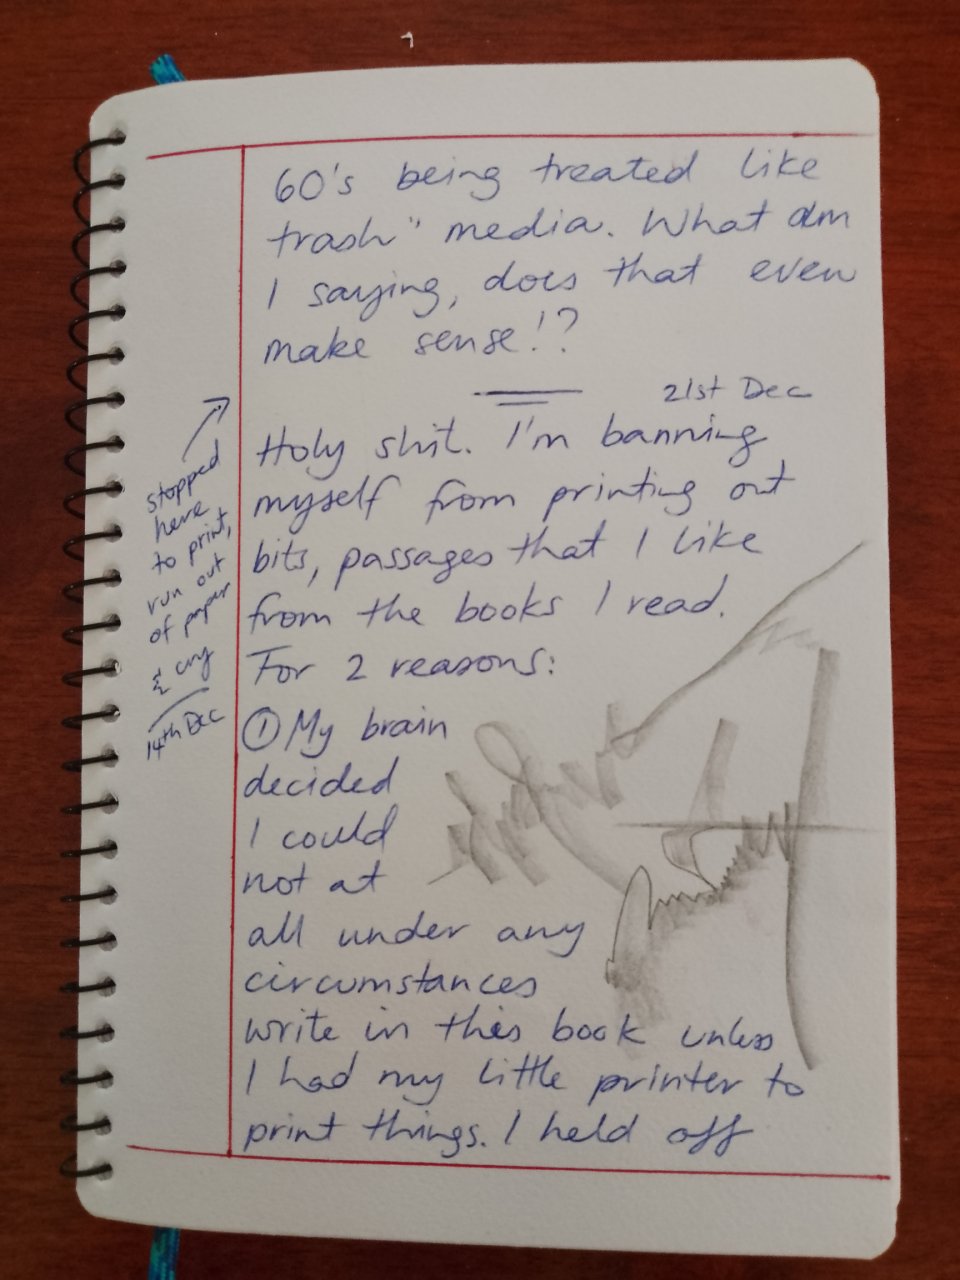 60's being treated like
trash" media. What am
I saying, does that even
make sense!?
21st Dec
Holy shit. I'm banning
myself from printing out
bits, passages that I like
from the books I read.
For 2 reasons:
① My brain
decided
I could
not at
all under any
circumstances
write in this book unless
I had my little printer to
print things. I held off
stopped
here
to print,
run out
of paper
& cry
14th Dec